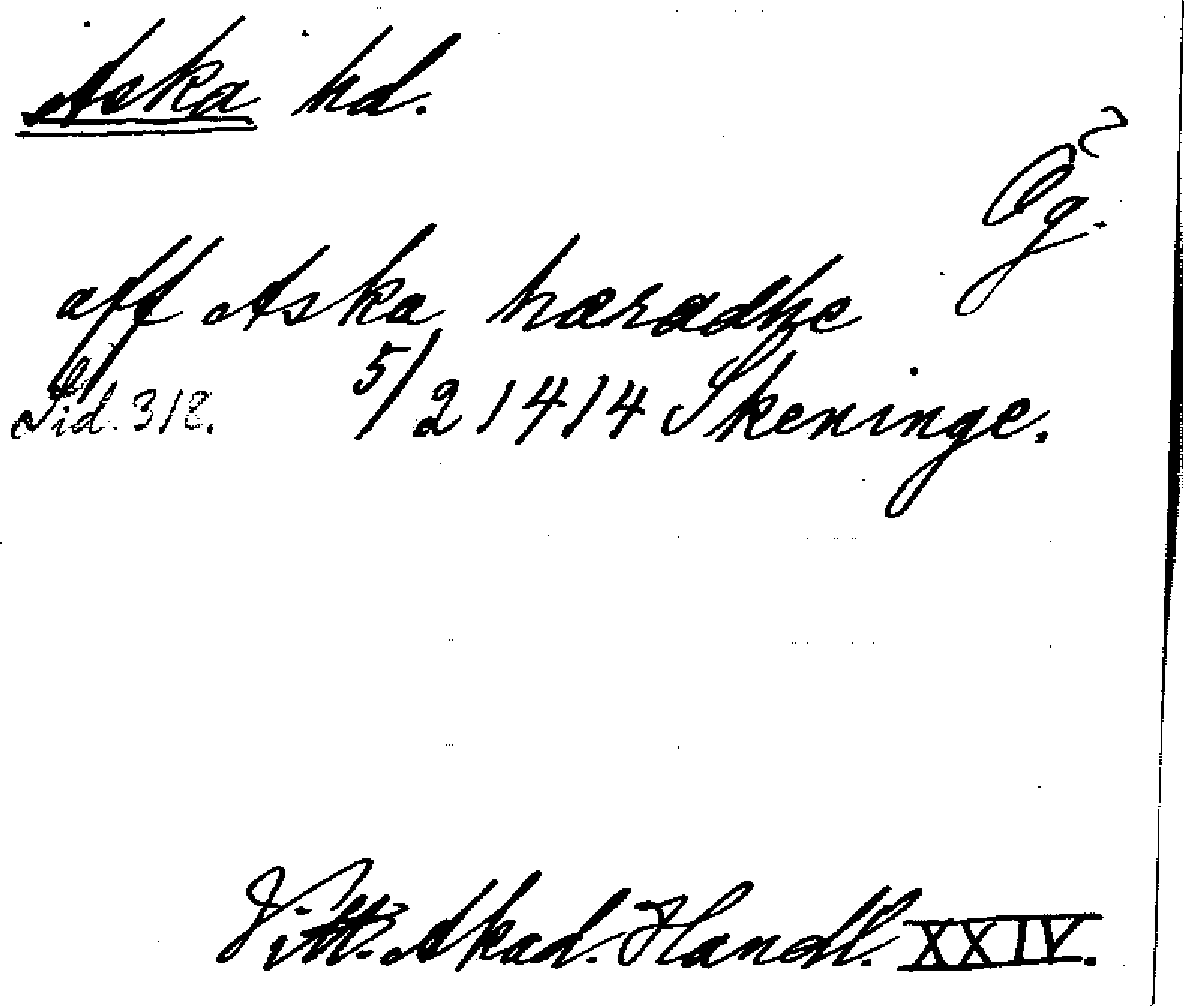 Aska hd.
Ög.
aff Aska hæradhe
Sid. 318. 5/2 1414 Skeninge.
Vitt. Akad. Handl. XXIV.